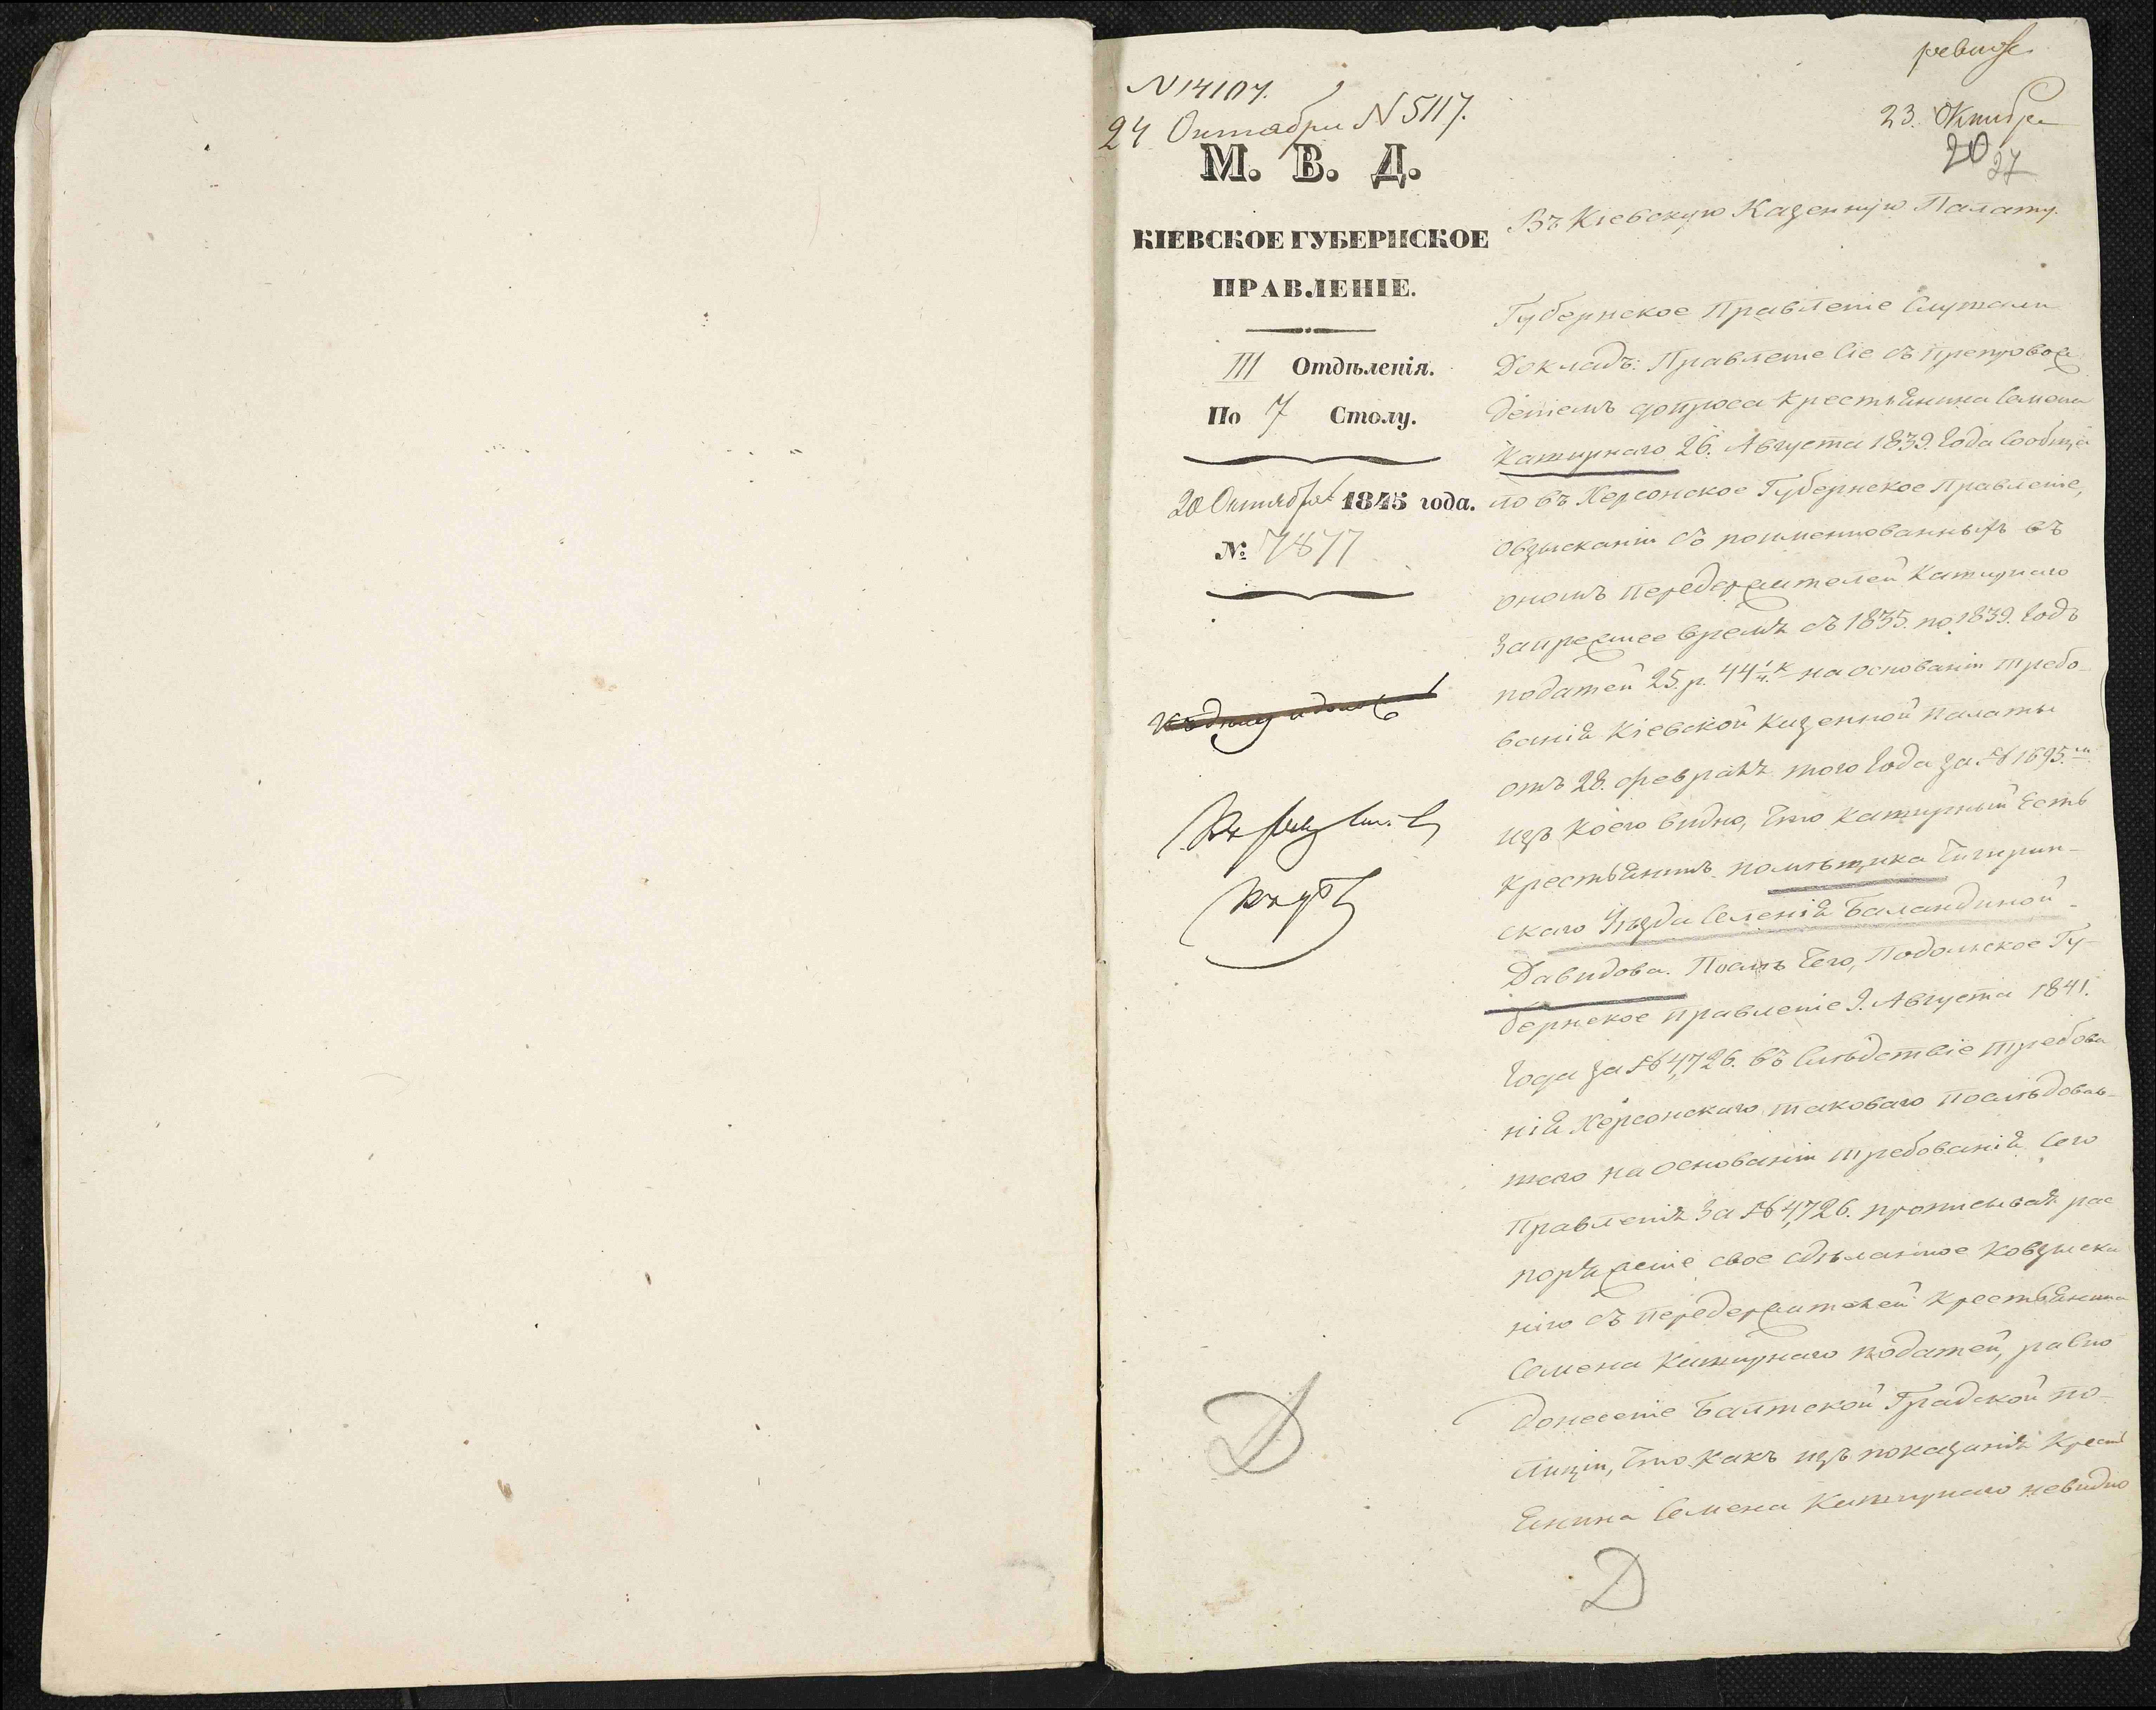 N 14107.
24 Октября N 5117.
М. В. Д.
КІЕВСКОЕ ГУБЕРНСКОЕ
ПРАВЛЕНІЕ.
III Отдѣленія.
По 7 Столу.
20 Октября 1845 года.
№ 7877
23. Октября
20
27
Въ Кіевскую Казенную Палату.
Губернское Правленіе Слушали
Докладъ: Правленіе Сіе съ препровож
деніемъ допроса крестьянина Семена
Катирнаго 26. Августа 1839. Года Сообща
ло въ Херсонское Губернское Правленіе,
Овзысканіи съ поименнованныхъ въ
ономъ передержателей Катирнаго
Запрежнее время съ 1835. по 1839. Годъ
податей 25. р. 44 1/4 к на основаніи требо-
ванія Кіевской Казенной Палаты
отъ 28. февраля того Года за № 1695.
изъ коего видно, что Катирный есть
крестьянинъ помѣщика Чигирин-
скаго Уѣзда Селенія Баландиной
Давидова. Послѣ чего, Подольское Гу-
бернское правленіе 9. Августа 1841.
Года за № 4,726. въ Слѣдствіе требова
нія Херсонскаго таковаго послѣдовав-
шаго на основаніи требованія Сего
Правленія За № 4,726. прописывая рас
поряженіе свое сдѣланное ковзыска
нію съ передержателей крестьянина
Семена Катирнаго податей, равно
донесеніе Балтской Градской по-
лиціи, что какъ изъ показанія Крестъ
янина Семена Катирнаго невидно
Д
Д